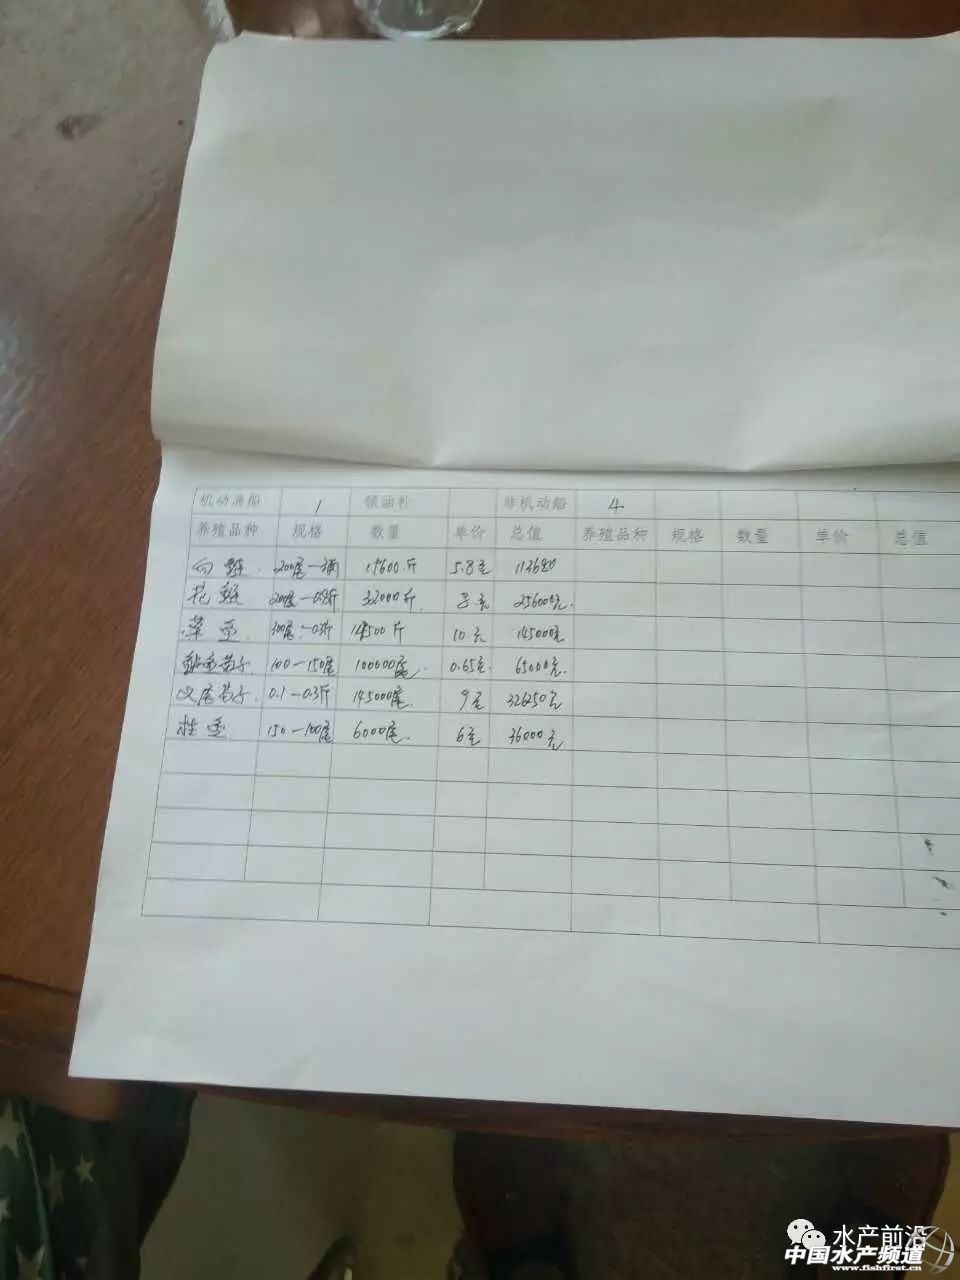 机动渔船 1 领油补 非机动船 4
养殖品种 规格 数量 单价 总值 养殖品种 规格 数量 单价 总值
白鲢 19600斤 5.8元 113680
花鲢 32000斤 元 256000元
14500斤 10元 145000元
苗子 100-150尾 100000尾 0.65元 65000元
苗子 0.1-0.3斤 145000尾 9元 326250元
150-100尾 6000尾 6元 36000元
水产前沿
中国水产频道
www.fishfirst.cn